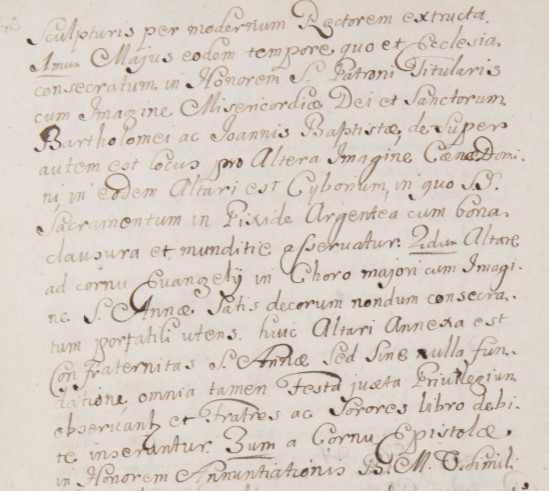 Sculpturis per modernum Rectorem extructa.
1mum Majus eodem tempore quo et Ecclesia
consecratum in Honorem S. Patroni Titularis
cum Imagine Misericordiæ Dei et Sanctorum
Bartholomei ac Joannis Baptistæ, de super
autem est locus pro Altera Imagine Cænæ Domi-
ni, in eodem Altari est Cyborium, in quo S.S.
Sacramentum in Pixide Argentea cum bona
clausura et munditie asservatur. 2dum Altare
ad cornu Evangelÿ in Choro majori cum Imagi-
ne S. Annæ Satis decorum nondum consecra-
tum portatili utens. huic Altari Annexa est
Confraternitas S. Annæ Sed Sine nulla fun-
datione, omnia tamen Festa juxta Privilegium
observant et Fratres ac Sorores libro debi-
te inserantur. 3um a Cornu Epistolæ
in Honorem Annuntiationis B. M. V. simili